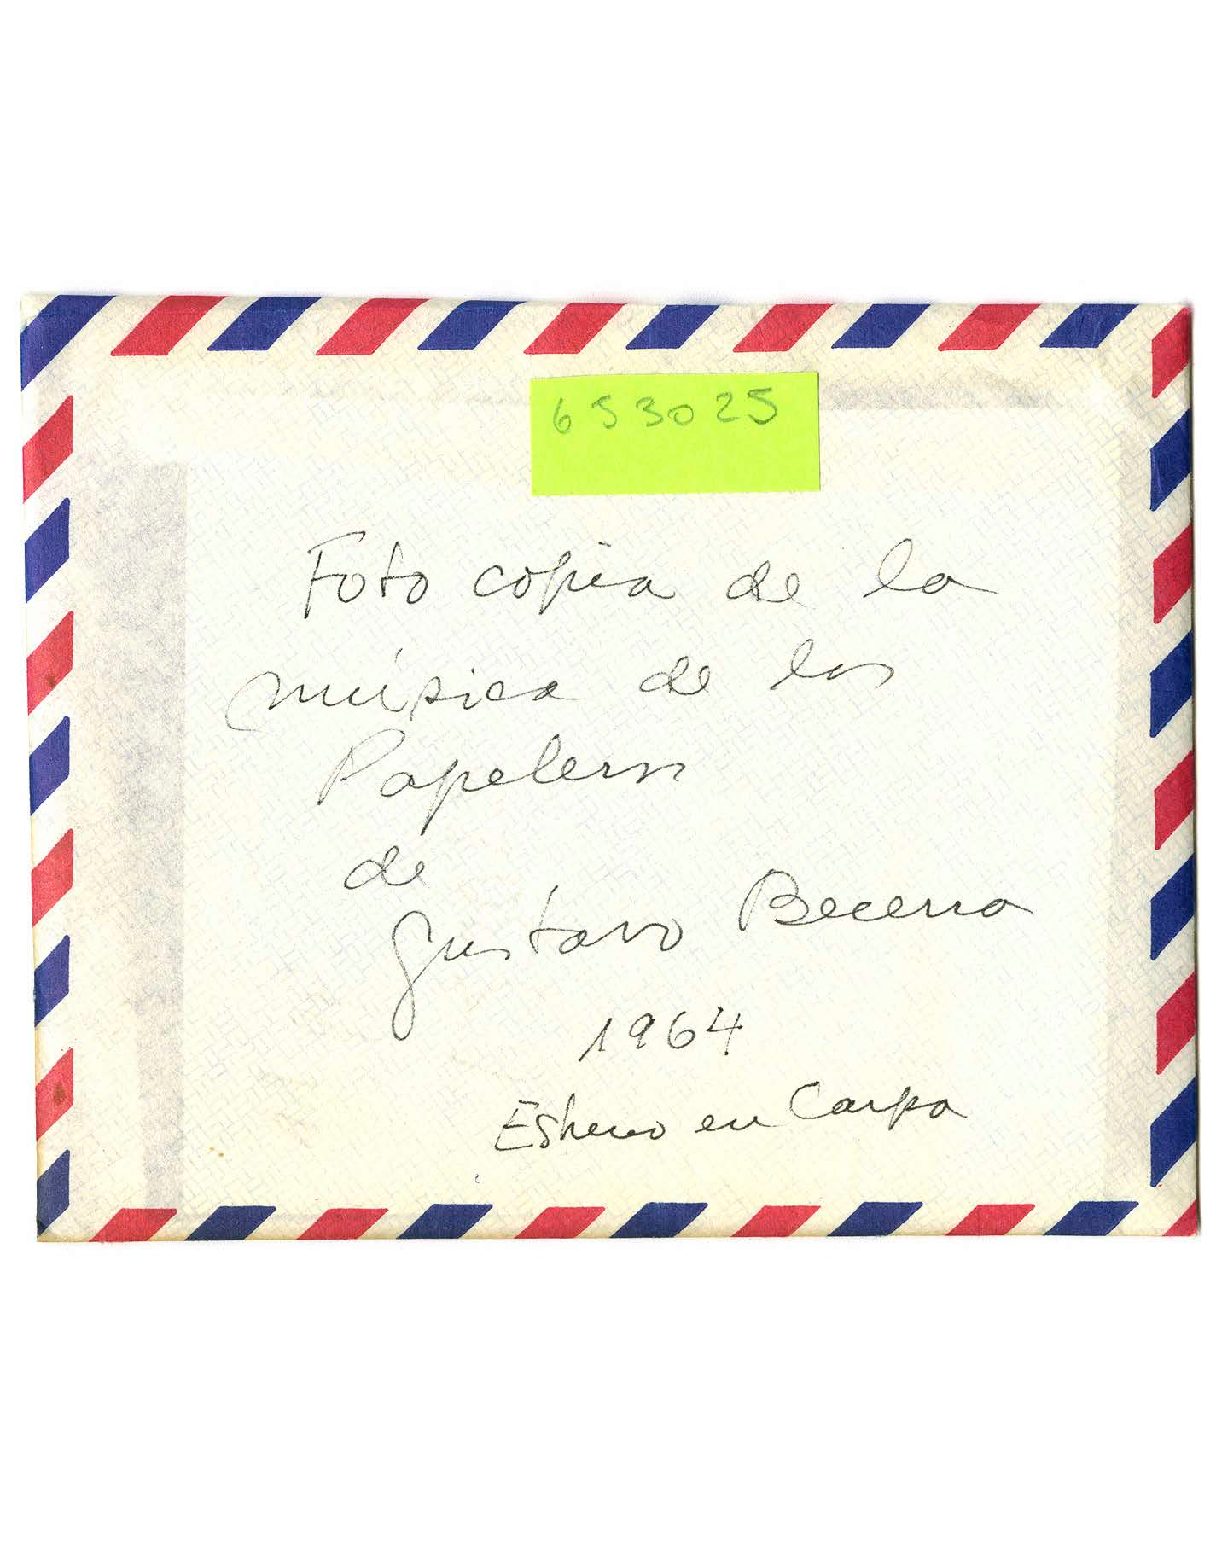 653025
Foto copia de la
música de los
Papeleros
de
Gustavo Becerra
1964
Estreno en Carpa